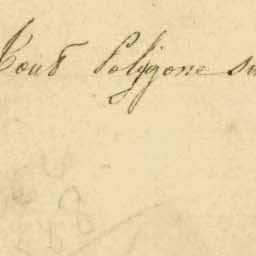 Tout Polygone su